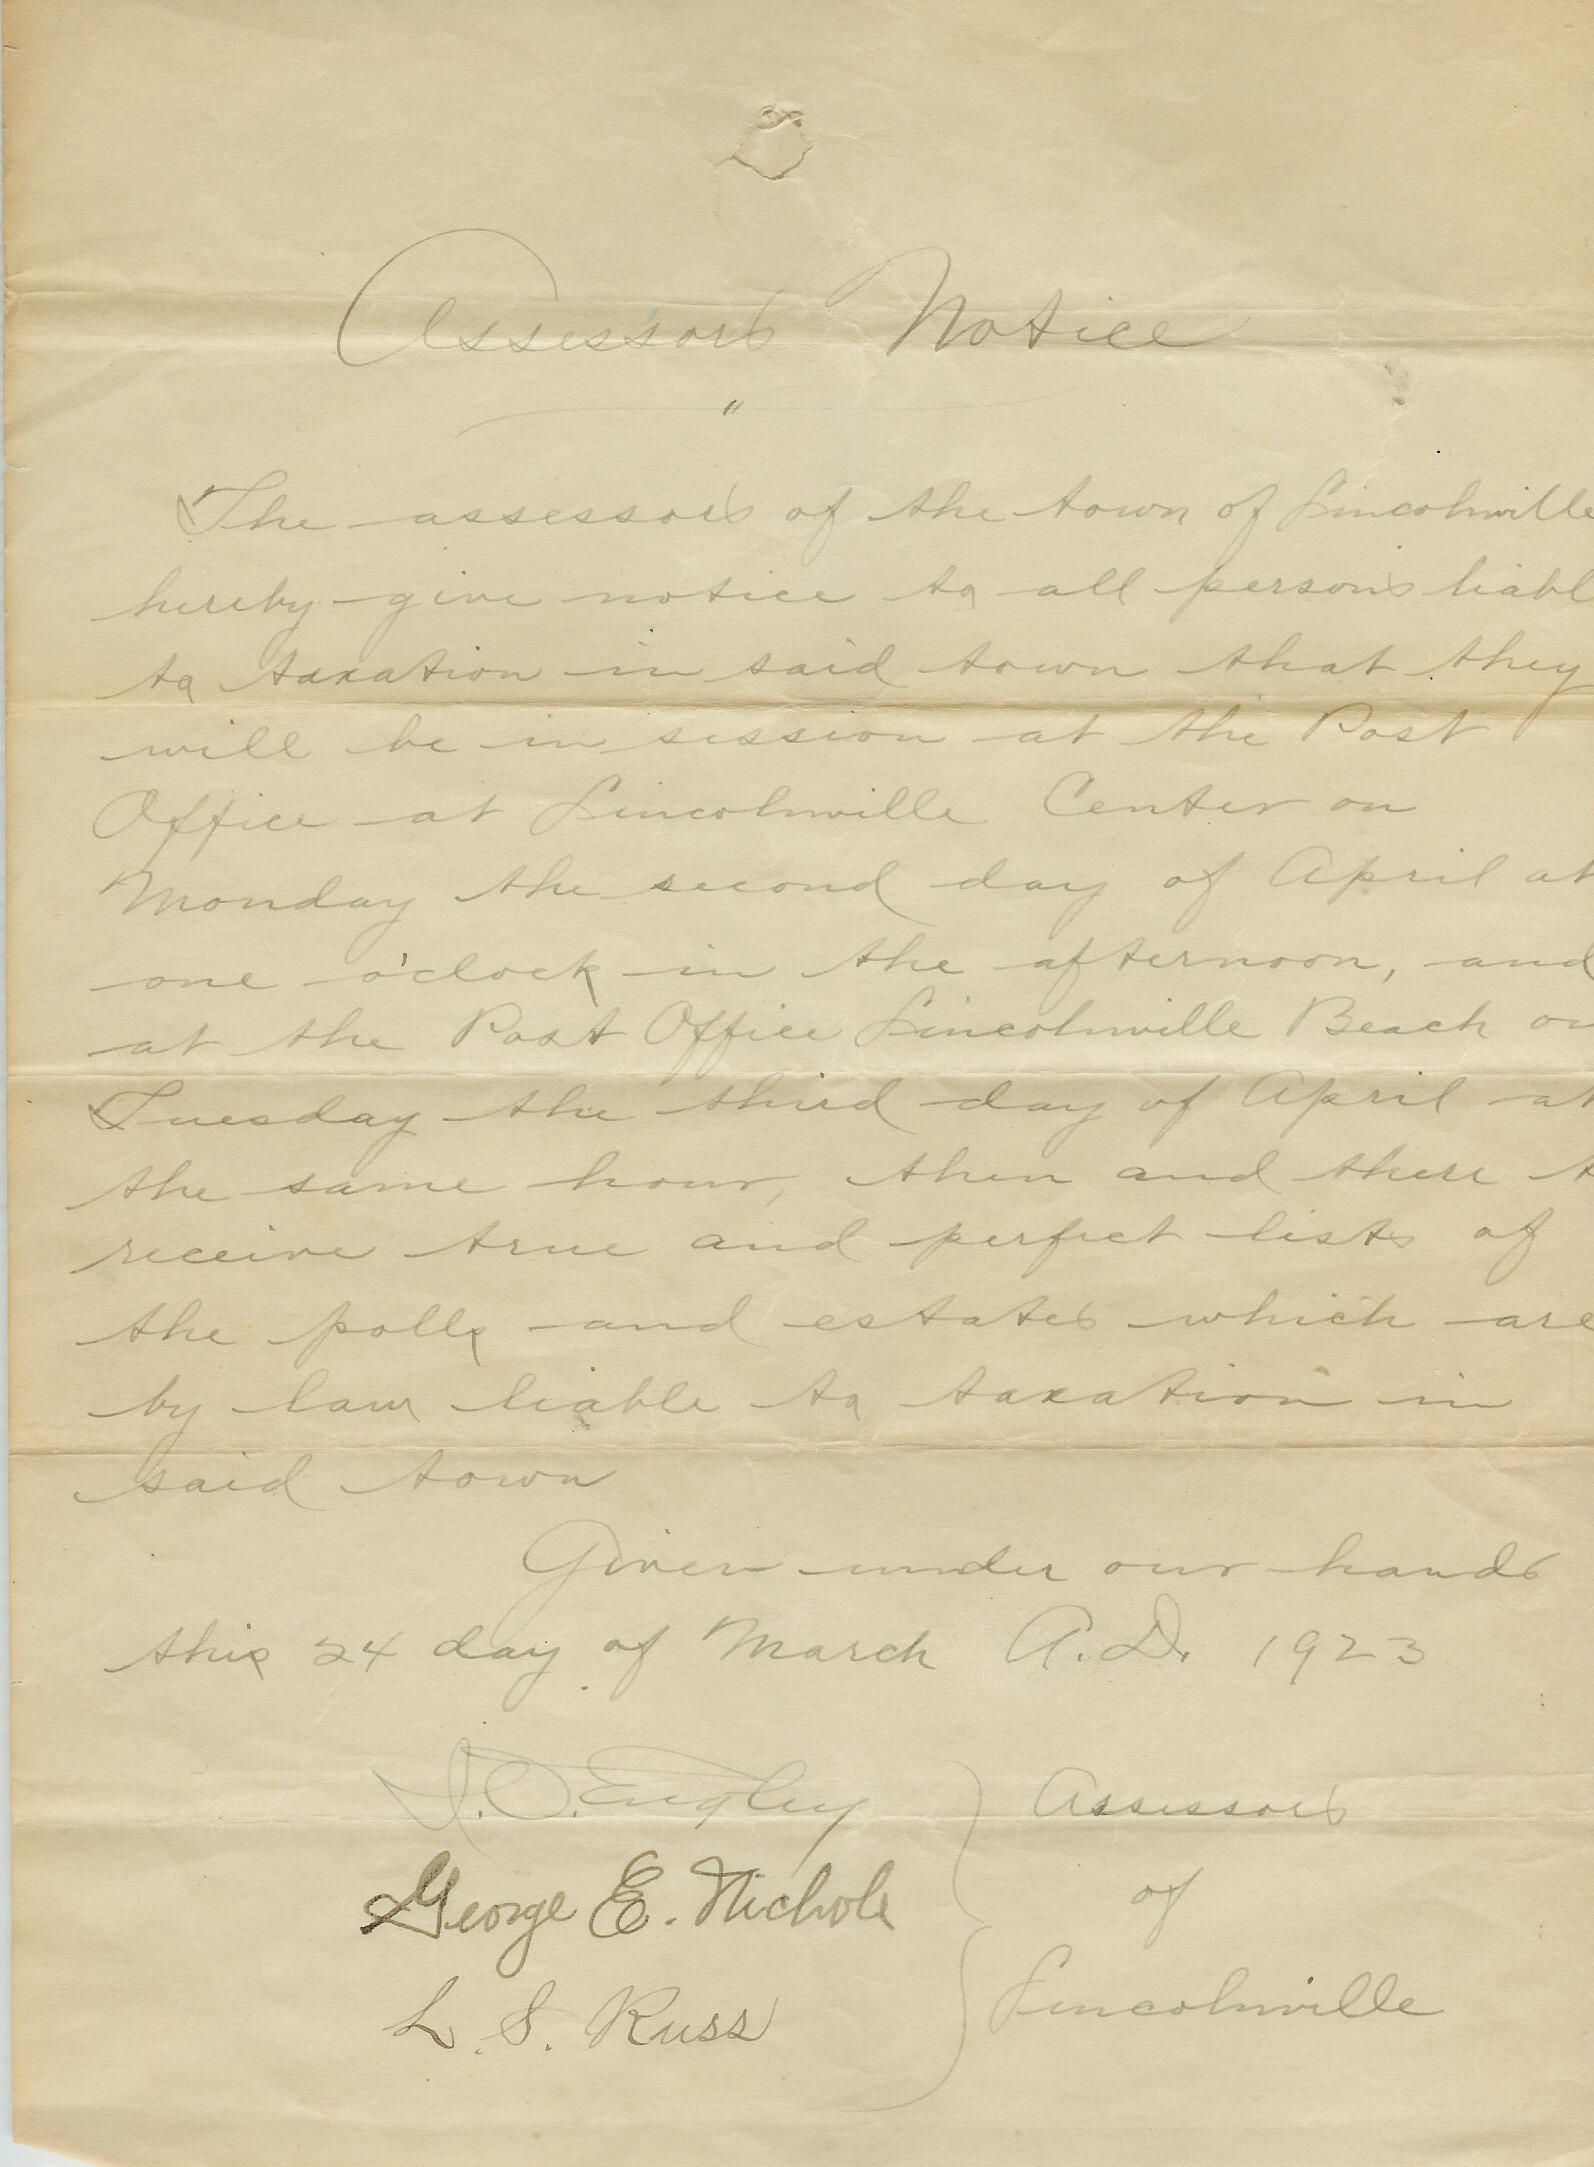 Assessors Notice
"
The assessors of the town of Lincolnville
hereby give notice to all persons liabl
to taxation in said town that they
will be in session at the Post
Office at Lincolnville Center on
Monday the second day of April at
one o'clock in the afternoon, and
at the Post Office Lincolnville Beach on
Tuesday the third day of April at
the same hour, then and there t
receive true and perfect lists of
the polls and estates which are
by law liable to taxation in
said town
Given under our hands
this 24 day of March A.D. 1923
Assessors
George E. Nichols
of
L. S. Russ
Lincolnville